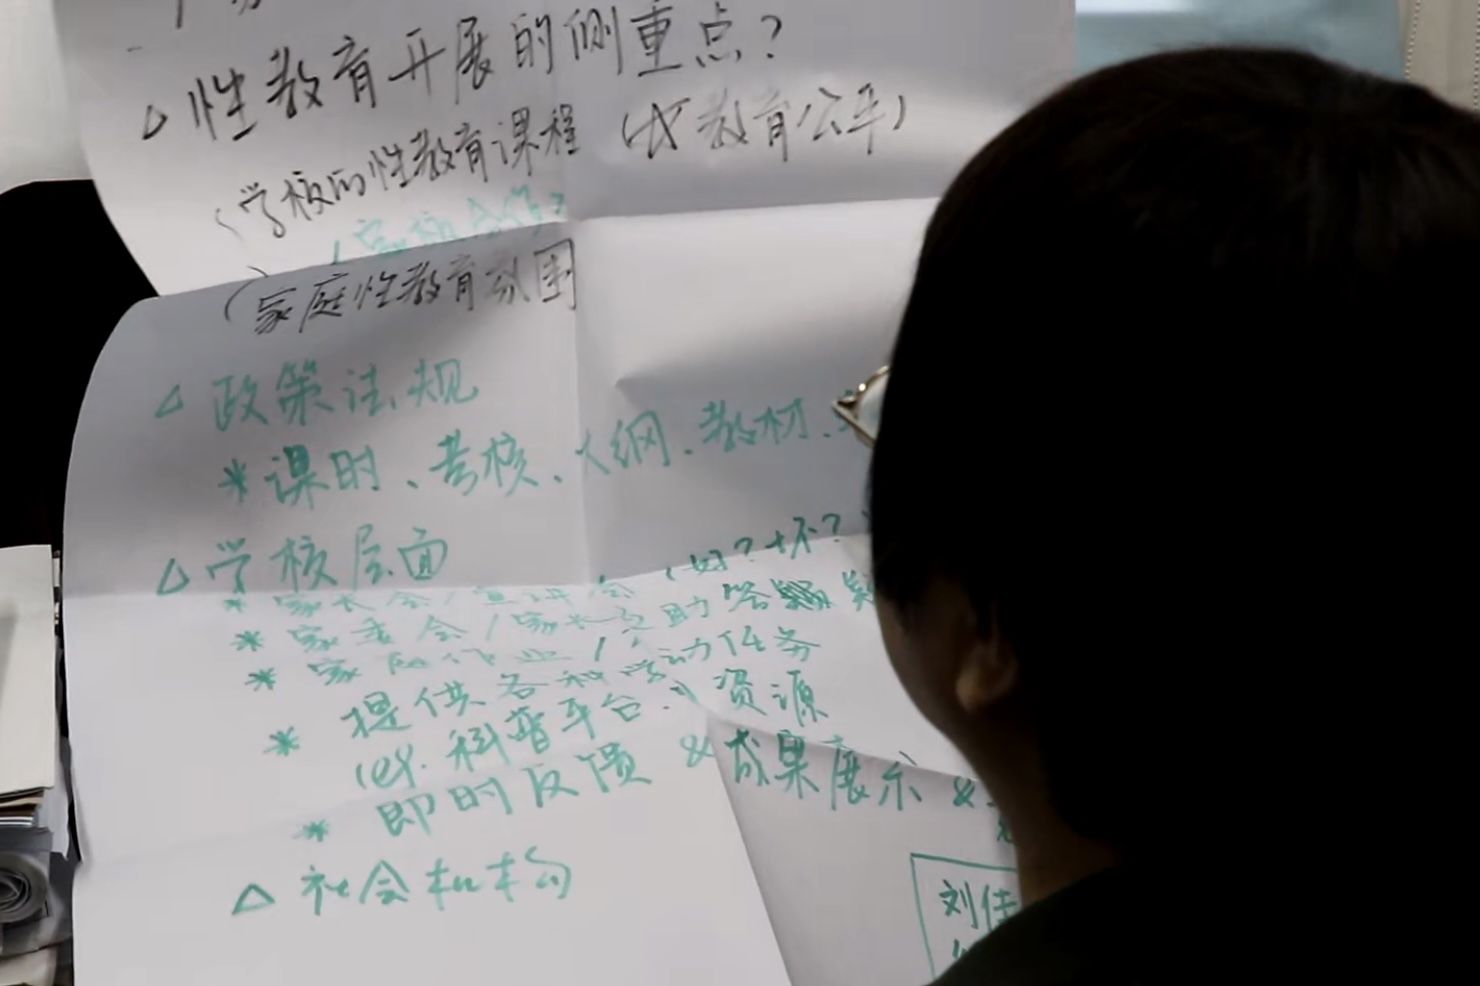 △ 性教育开展的侧重点?
(学校的性教育课程 (教育公平)
(家校合作?
(家庭性教育氛围
△ 政策法规
* 课时、考核、大纲、教材、
△ 学校层面
* 家长会/宣讲会 (好?坏?
* 家委会/家长互助 答疑
* 家庭作业/ 动任务
* 提供各科学习资源
(ex. 科普平台.)
* 即时反馈 & 成果展示 &
△ 社会机构
刘佳